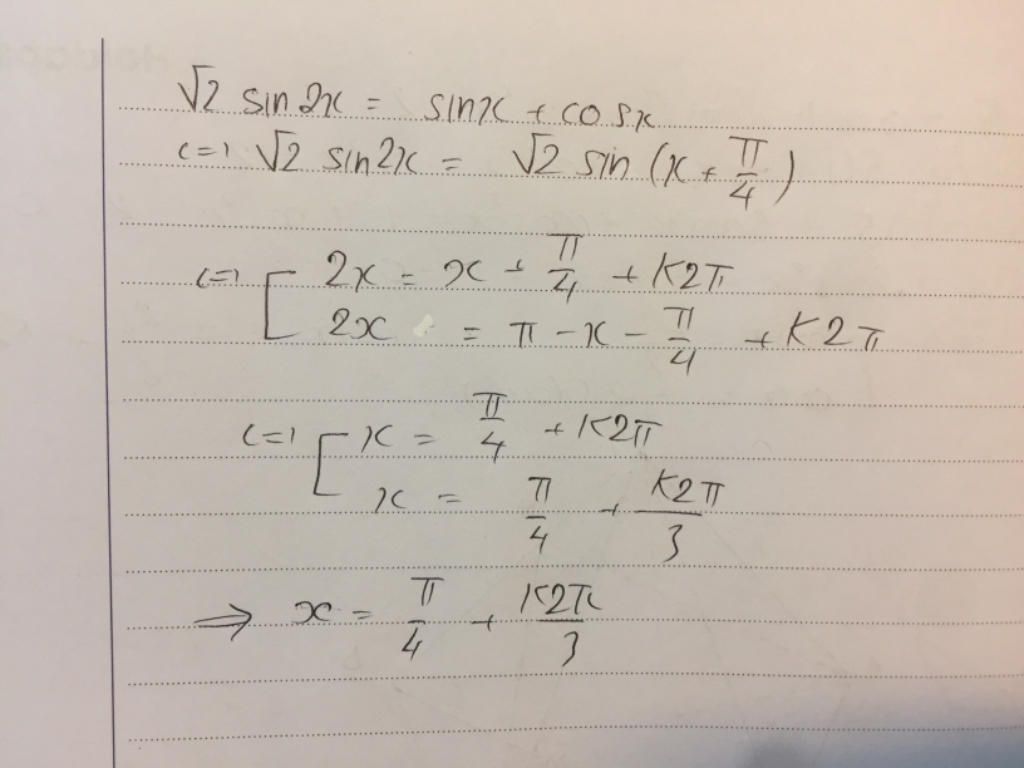 √2 sin 2x = sinx + cosx
<=> √2 sin 2x = √2 sin (x + π/4)
<=> [ 2x = x + π/4 + K2π
2x = π - x - π/4 + K2π
<=> [ x = π/4 + K2π
x = π/4 + K2π/3
⇒ x = π/4 + K2π/3